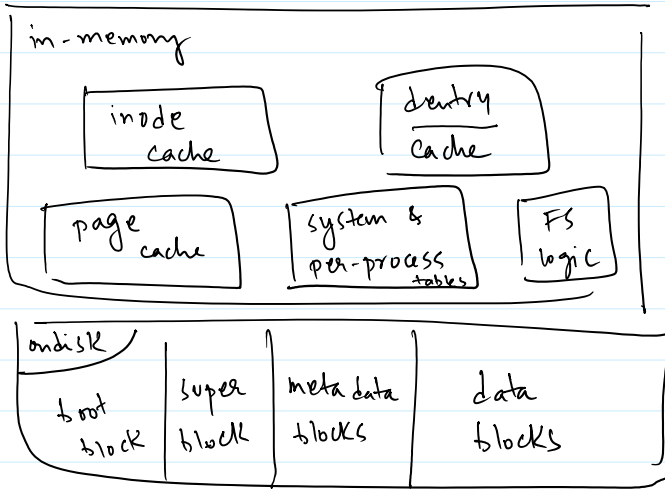 in-memory
inode
cache
dentry
cache
page
cache
system &
per-process
tables
FS
logic
ondisk
boot
block
super
block
meta data
blocks
data
blocks